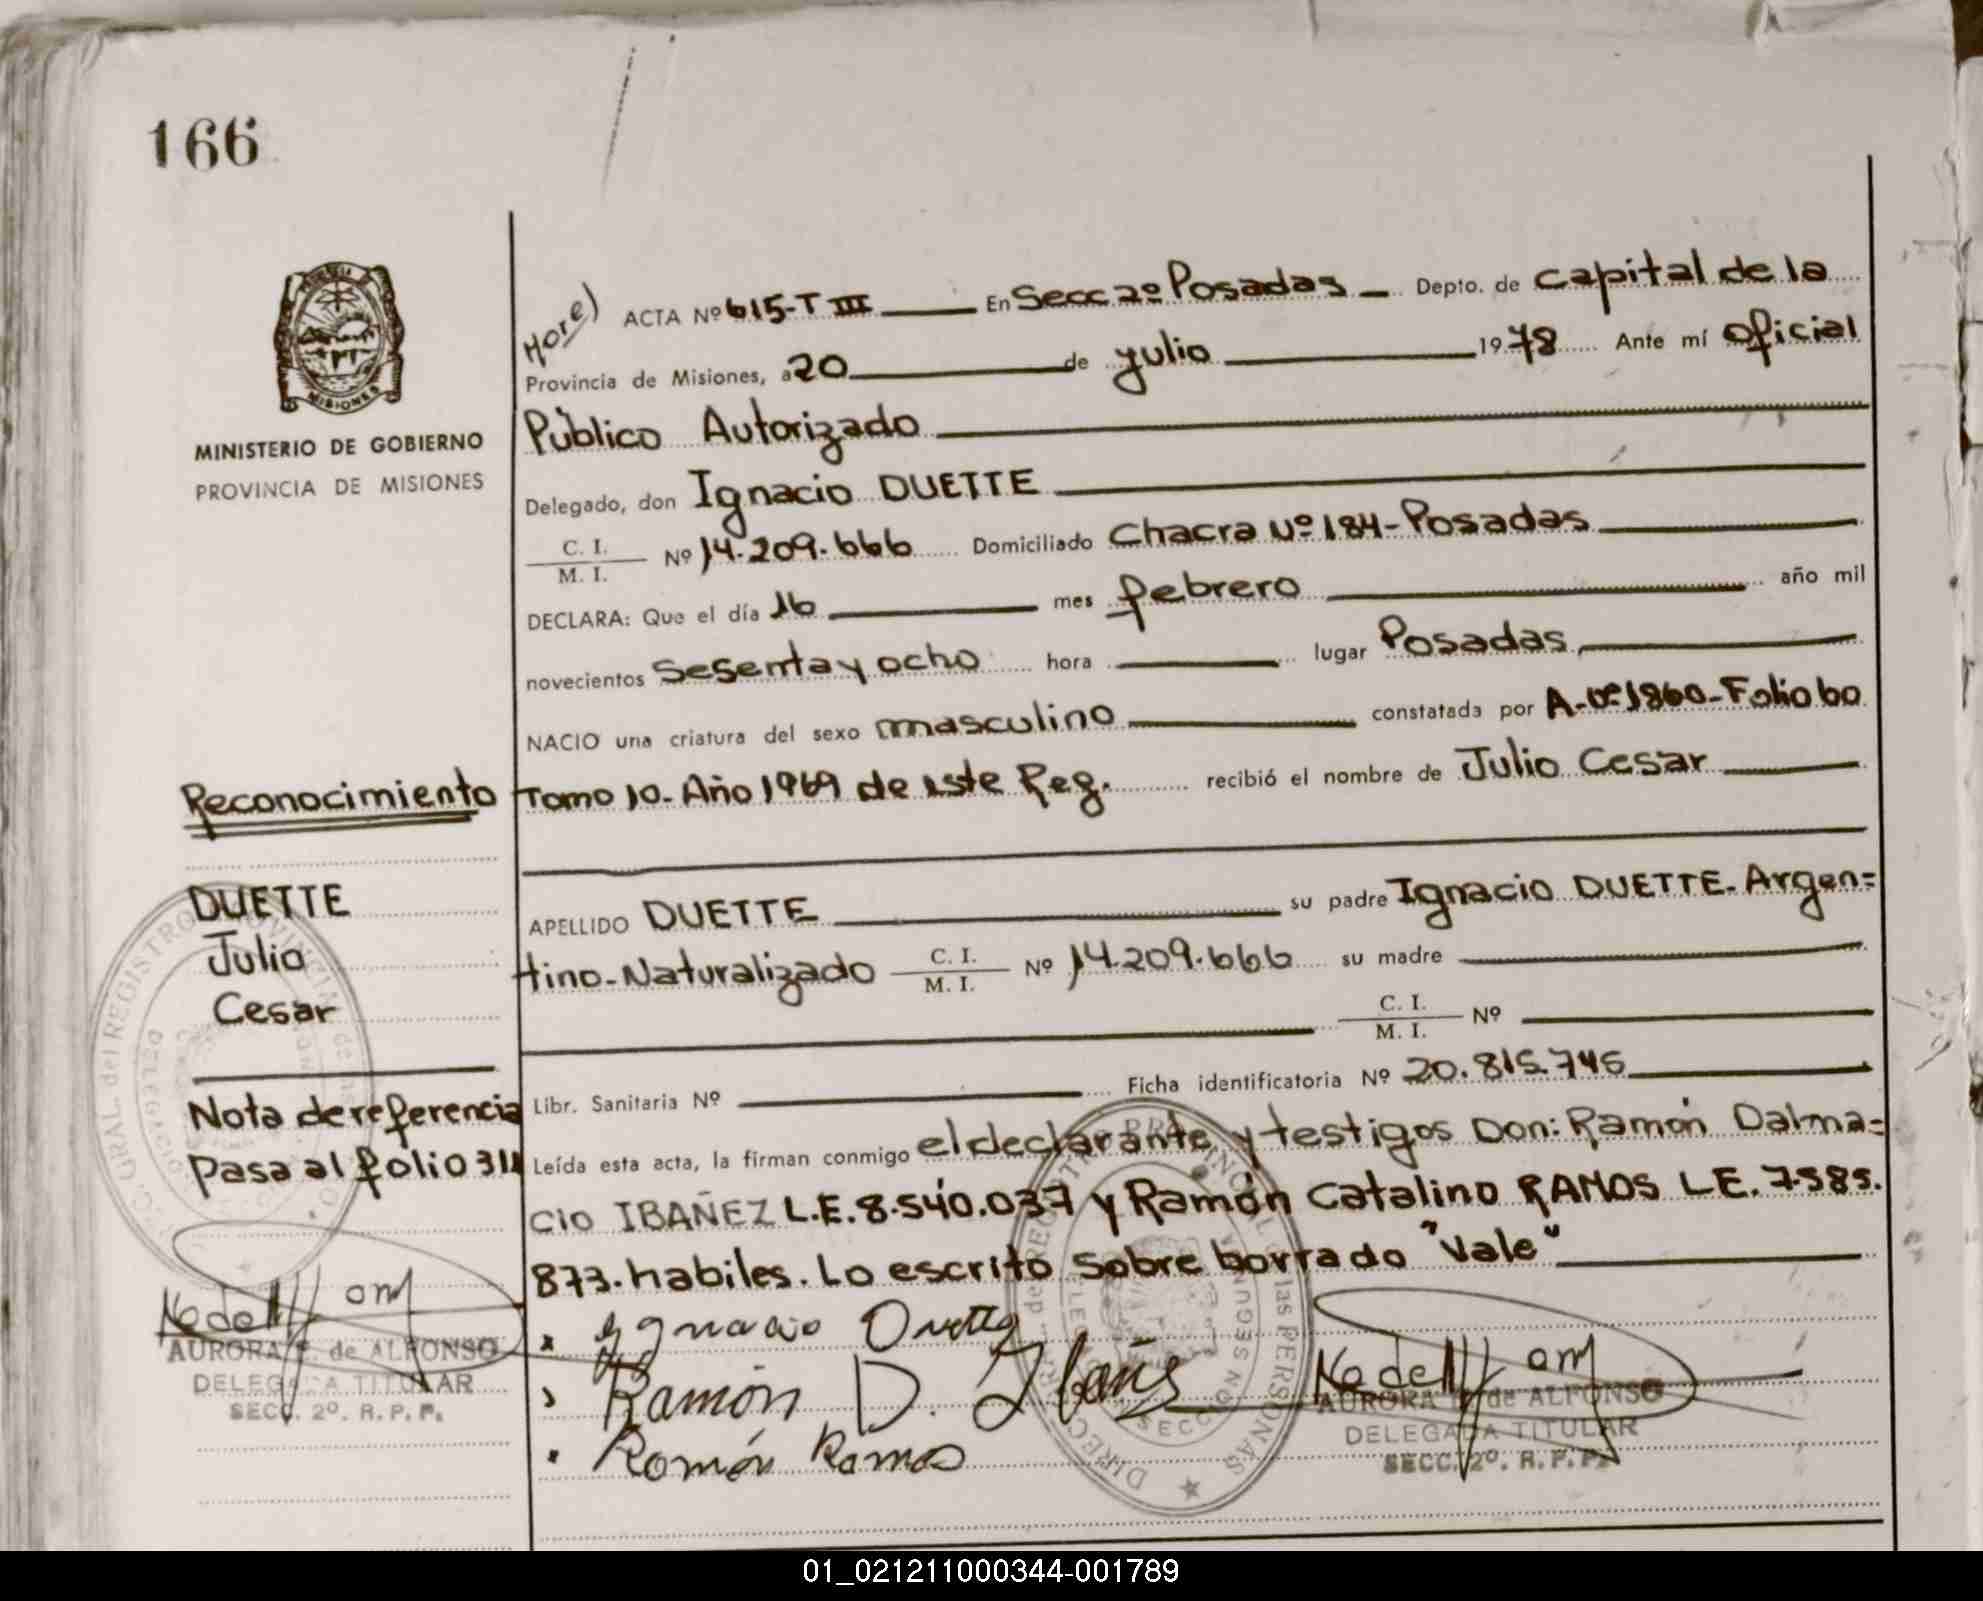 166
MISIONES
MINISTERIO DE GOBIERNO
PROVINCIA DE MISIONES
ACTA Nº 615-T III En Secc 2º Posadas Depto. de Capital de la
Provincia de Misiones, a 20 de Julio 1978 Ante mí Oficial
Público Autorizado
Delegado, don Ignacio DUETTE
C. I.
M. I. Nº 14.209.666 Domiciliado Chacra Nº 184-Posadas
DECLARA: Que el día 16 mes febrero año mil
novecientos Sesenta y ocho hora lugar Posadas,
NACIO una criatura del sexo masculino constatada por A-Nº 1860-Folio 60
Tomo 10-Año 1969 de este Reg. recibió el nombre de Julio Cesar
APELLIDO DUETTE su padre Ignacio DUETTE-Argen=
tino-Naturalizado C. I.
M. I. Nº 14.209.666 su madre
C. I.
M. I. Nº
Libr. Sanitaria Nº Ficha identificatoria Nº 20.815.745
Leída esta acta, la firman conmigo el declarante y testigos Don: Ramón Dalma=
cio IBAÑEZ L.E. 8.540.037 y Ramón Catalino RAMOS L.E. 7.585.
873. habiles. Lo escrito sobre borrado "Vale"
Ramón D.
Ramón Ramos
Reconocimiento
DUETTE
Julio
Cesar
Nota de referencia
Pasa al folio
AURORA de ALFONSO
DELEGADA TITULAR
SECC. 2º. R. P. P.
AURORA de ALFONSO
DELEGADA TITULAR
SECC. 2º. R. P. P.
01_021211000344-001789